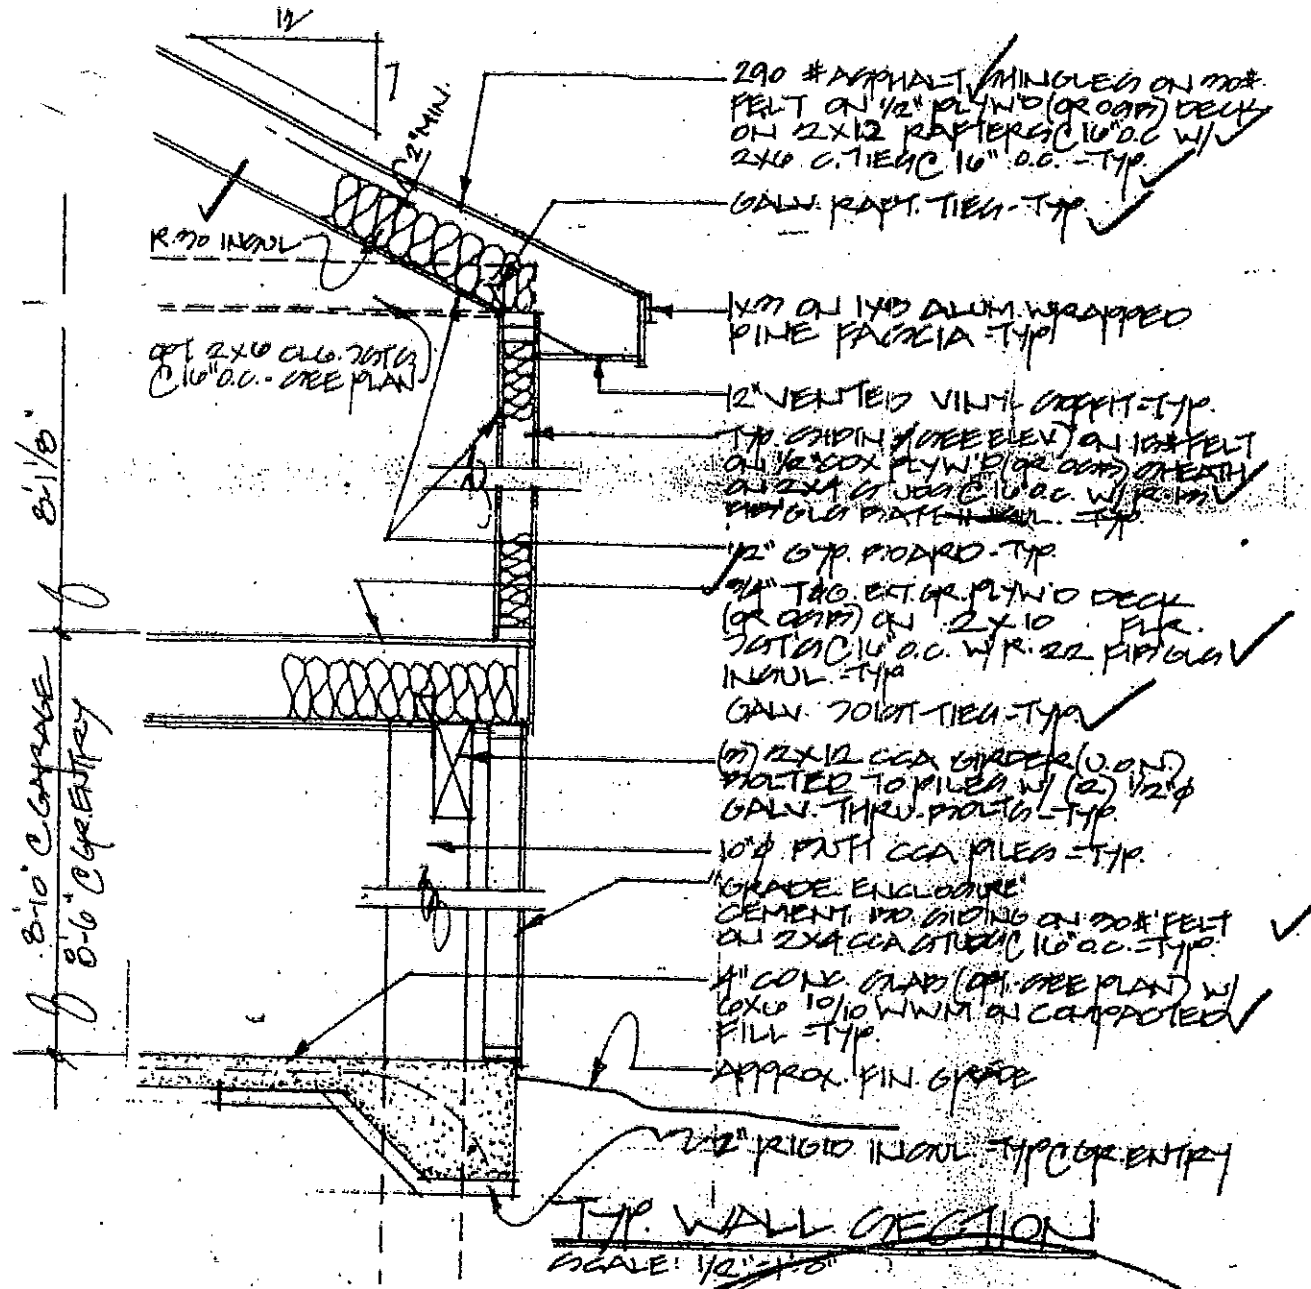 12
7
2" MIN.
290 # ASPHALT SHINGLES ON 30#
FELT ON 1/2" PLYW'D (OR OSB) DECK
ON 2X12 RAFTERS @ 16" O.C W/
2X6 C.TIES @ 16" O.C. - TYP.
GALV. RAFT. TIES - TYP.
R.30 INSUL
1X3 ON 1X8 ALUM. WRAPPED
PINE FASCIA - TYP
OPT. 2X6 CLG. JSTS
@ 16" O.C. - SEE PLAN
12" VENTED VINYL SOFFIT - TYP.
TYP. SIDING (SEE ELEV) ON 15# FELT
ON 1/2" CDX PLYW'D (OR OSB) SHEATH
ON 2X4 STUDS @ 16" O.C. W/ R.13
FIB'GLS BATT INSUL. - TYP.
8'-1 1/8"
1/2" GYP. BOARD - TYP.
3/4" T&G. EXT. GR. PLYW'D DECK
(OR OSB) ON 2X10 FLR.
JSTS @ 16" O.C. W/ R.22 FIB'GLS
INSUL. - TYP
GALV. JOIST TIES - TYP
8'-10" @ GARAGE
8'-6" @ GR. ENTRY
(3) 2X12 CCA GIRDER (U.O.N.)
BOLTED TO PILES W/ (2) 1/2"φ
GALV. THRU-BOLTS - TYP.
10"φ CCA PILES - TYP.
"GRADE ENCLOSURE"
CEMENT BD. SIDING ON 30# FELT
ON 2X4 CCA STUDS @ 16" O.C. - TYP.
4" CONC. SLAB (OPT. SEE PLAN) W/
6X6 10/10 WWM ON COMPACTED
FILL - TYP.
APPROX. FIN. GRADE
2" RIGID INSUL - TYP @ GR. ENTRY
TYP. WALL SECTION
SCALE: 1/2"=1'-0"